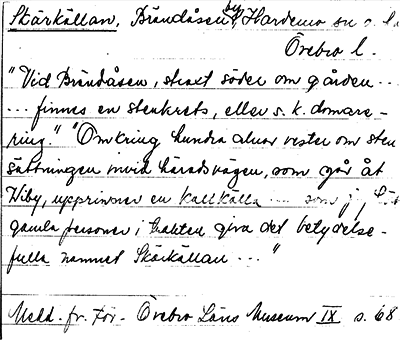 Skärkällan, Brändåsen, Hardemo sn o. hd
Örebro l.
"Vid Brändåsen, straxt söder om gården ...
... finnes en stenkrets, eller s. k. domare-
ring." "Omkring hundra alnar vester om sten
sättningen invid häradsvägen, som går åt
Wiby, upprinner en kallkälla ... som
gamla personer i trakten giva det betydelse-
fulla namnet Skärkällan ..."
Medd. fr. För. Örebro Läns Museum IX s. 68